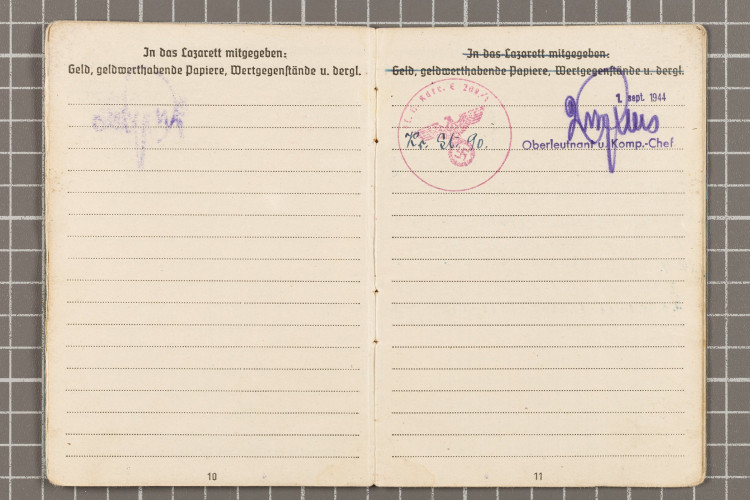 In das Lazarett mitgegeben:
Geld, geldwerthabende Papiere, Wertgegenstände u. dergl.
10
In das Lazarett mitgegeben:
Geld, geldwerthabende Papiere, Wertgegenstände u. dergl.
1. Sept. 1944
Kr. St. Go.
Oberleutnant u. Komp.-Chef
11